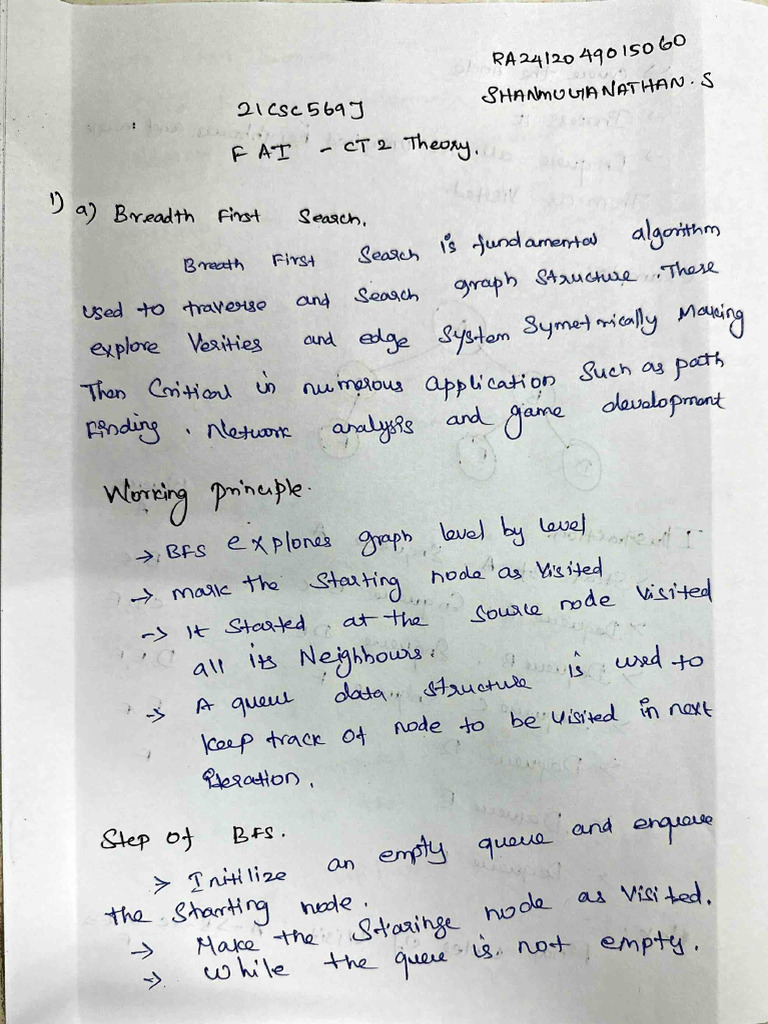 RA2412049015060
SHANMUGANATHAN. S
21CSC569J
FAI - CT2 Theory.
1) a) Breadth First Search.
Breath First Search is fundamental algorithm
used to traverse and Search graph Structure. These
explore Verities and edge System Symetrically Making
Then Critical in numerous application Such as path
Finding. Network analysis and game development
Working principle.
→ BFS explores graph level by level
→ mark the Starting node as Visited
→ It Started at the Source node Visited
all its Neighbours.
→ A queue data structure is used to
keep track of node to be visited in next
iteration.
Step of BFS.
> Initilize an empty queue and enqueue
the Starting node.
→ Make the Staringe node as Visited.
→ While the queue is not empty.